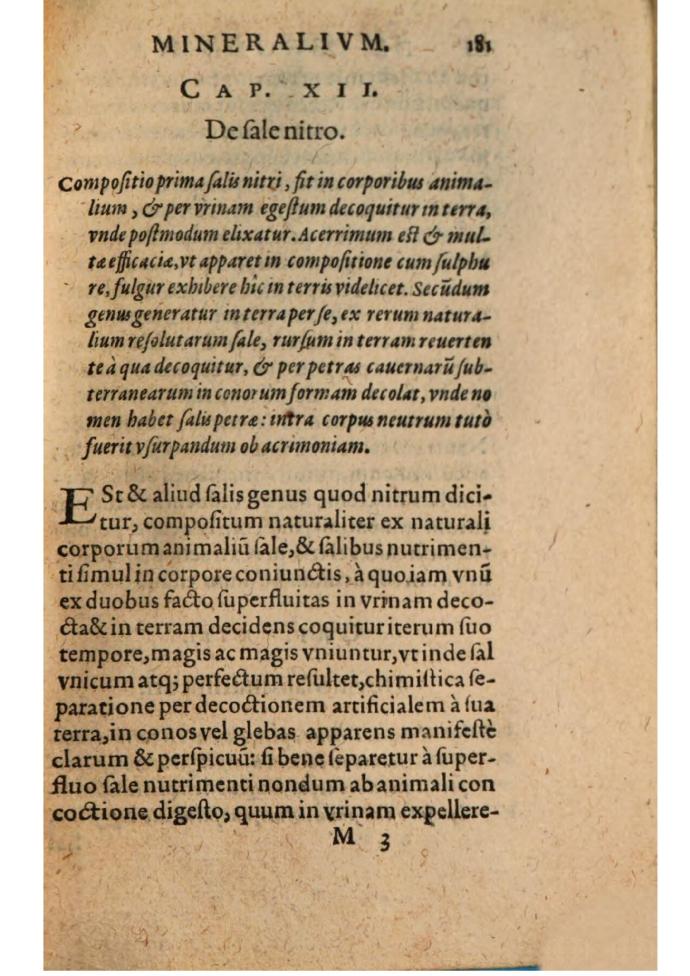 MINERALIVM. 181
CAP. XII.
De ſale nitro.
Compoſitio prima ſalis nitri, fit in corporibus anima-
lium, & per vrinam egeſtum decoquitur in terra,
vnde poſtmodum elixatur. Acerrimum est & mul-
tæ efficaciæ, vt apparet in compoſitione cum ſulphu
re, fulgur exhibere hic in terris videlicet. Secūdum
genus generatur in terra per ſe, ex rerum natura-
lium reſolutarum ſale, rurſum in terram reuerten
te à qua decoquitur, & per petras cauernarū ſub-
terranearum in conorum formam decolat, vnde no
men habet ſalis petræ: intra corpus neutrum tutò
fuerit vſurpandum ob acrimoniam.
ESt & aliud ſalis genus quod nitrum dici-
tur, compoſitum naturaliter ex naturali
corporum animaliū ſale, & ſalibus nutrimen-
ti ſimul in corpore coniunctis, à quo iam vnū
ex duobus facto ſuperfluitas in vrinam deco-
cta & in terram decidens coquitur iterum ſuo
tempore, magis ac magis vniuntur, vt inde ſal
vnicum atq; perfectum reſultet, chimiſtica ſe-
paratione per decoctionem artificialem à ſua
terra, in conos vel glebas apparens manifeſtè
clarum & perſpicuū: ſi bene ſeparetur à ſuper-
fluo ſale nutrimenti nondum ab animali con
coctione digeſto, quum in vrinam expellere-
M 3